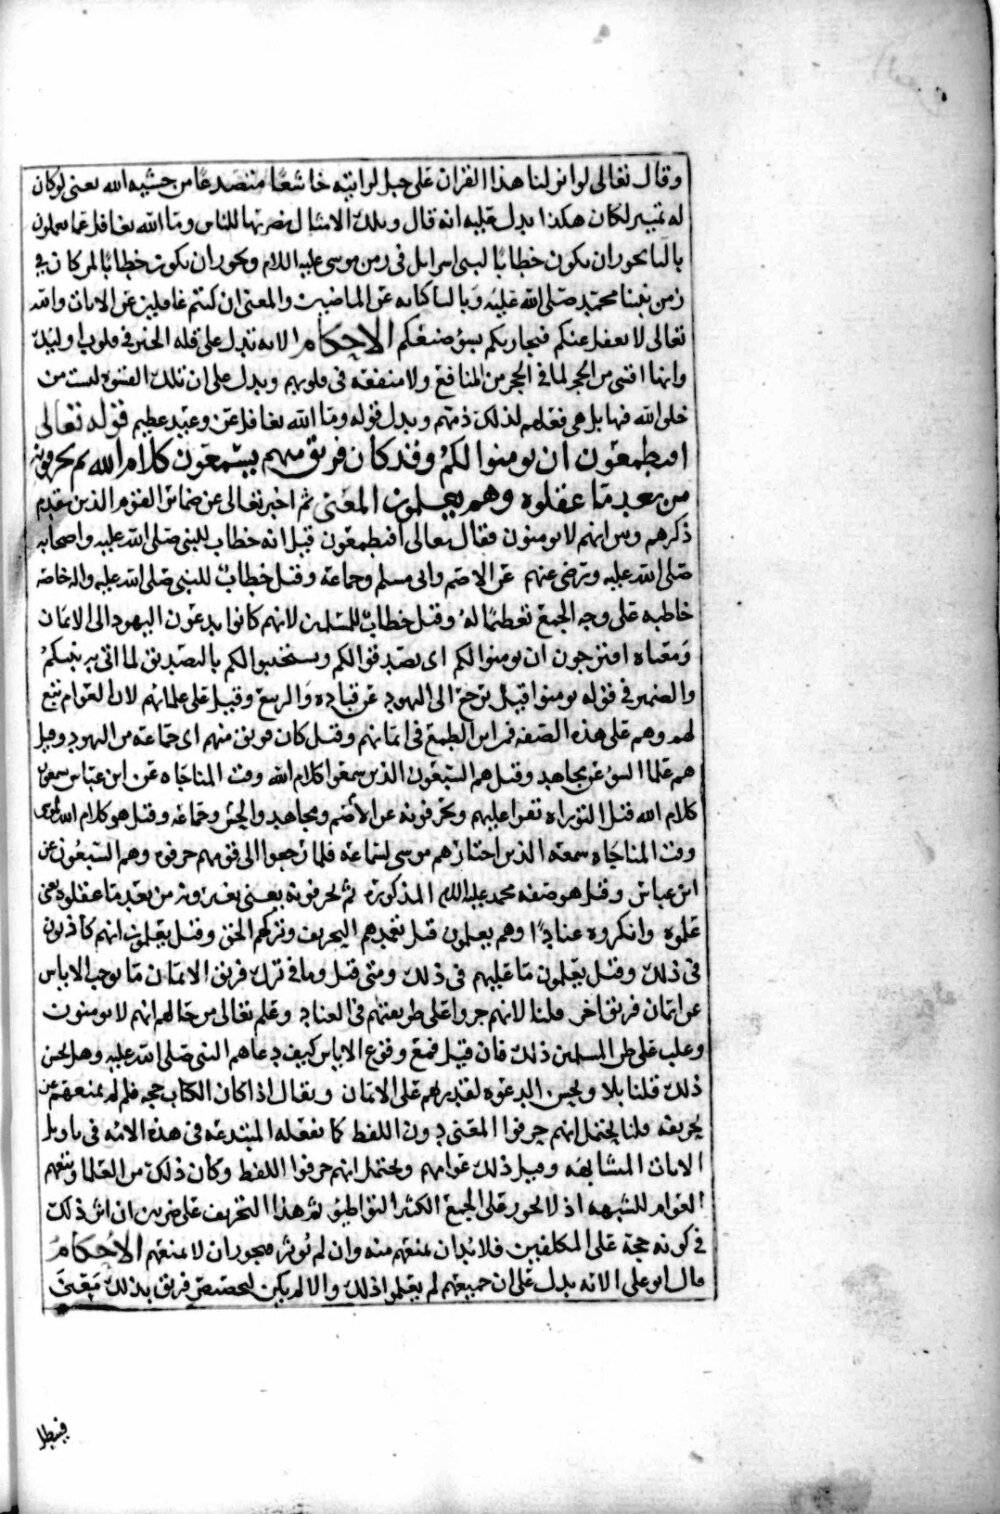 وقال تعالى لو انزلنا هذا القران على جبل لرايته خاشعًا متصدعًا من خشيه الله يعنى لو كان
له تمييز لكان هكذا يدل عليه انه قال وتلك الامثال نضربها للناس وما الله بغافل عما يعملون
باليا يجوز ان يكون خطابًا لبنى اسرايل فى زمن موسى عليه السلام ويجوز ان يكون خطابًا لمن كان في
زمن نبينا محمد صلى الله عليه وباليا كنايه عن الماضين والمعنى ان كنتم غافلين عن الايمان والله
تعالى لا يغفل عنكم فيجازيكم بسوء صنيعكم الاحكام الايه تدل على قله الخير فى قلوب اوليك
وانها اقسى من الحجر لما فى الحجر من المنافع ولا منفعه فى قلوبهم ويدل على ان تلك القسوه ليست من
خلق الله فيها بل هى فعلهم لذلك ذمهم ويدل قوله وما الله بغافل عن وعيد عظيم قوله تعالى
افتطمعون ان يومنوا لكم وقد كان فريق منهم يسمعون كلام الله ثم يحرفونه
من بعد ما عقلوه وهم يعلمون المعنى ثم اخبر تعالى عن ضمائر القوم الذين تقدم
ذكرهم وبين انهم لا يومنون فقال تعالى افتطمعون قيل انه خطاب للنبى صلى الله عليه واصحابه
صلى الله عليه ورضى عنهم عن الاصم وابى مسلم وجماعة وقيل خطابٌ للنبى صلى الله عليه واله خاصه
خاطبه على وجه الجمع تعظيمًا له وقيل خطابٌ للمسلمين لانهم كانوا يدعون اليهود الى الايمان
ومعناه افترجون ان يومنوا لكم اى يصدقوا لكم ويستجيبوا لكم بالتصديق لما اتى به نبيكم
والضمير في قوله يومنوا قيل يرجع الى اليهود عن قتاده والربيع وقيل على علمائهم لان العوام تبع
لهم وهم على هذه الصفه فمن اين الطمع فى ايمانهم وقيل كان فريق منهم اى جماعة من اليهود وقيل
هم علما السوء عن مجاهد وقيل هم السبعون الذين سمعوا كلام الله وقت المناجاه عن ابن عباس يسمعون
كلام الله قيل التوراه عليهم ويحرفونه عن الاصم ومجاهد والحسن وجماعه وقيل هو كلام الله لموسى
وقت المناجاه سمعه الذين اختارهم موسى لسماعه فلما رجعوا الى قومهم حرفوه وهم السبعون عن
ابن عباس وقيل هو صفه محمد عليه السلام المذكورة ثم يحرفونه يعنى يغيرونه من بعد ما عقلوه يعنى
علموه وانكروه عنادًا وهم يعلمون قيل تعمدهم التحريف وتركهم الحق وقيل يعلمون انهم كاذبون
فى ذلك وقيل يعلمون ما عليهم فى ذلك ومتى قيل وما فى ترك فريق الايمان ما يوجب الاياس
عن ايمان فريق اخر قلنا لانهم جروا على طريقتهم فى العناد وعلم تعالى من حالهم انهم لا يومنون
وغلب على ظن المسلمين ذلك فان قيل فمع وقوع الاياس كيف دعاهم النبى صلى الله عليه وهل يحسن
ذلك قلنا بلا ويحسن الدعوه لقدرتهم على الايمان ويقال اذا كان الكتاب حجه فلم لم يمنعهم عن
تحريفه قلنا يحتمل انهم حرفوا المعنى دون اللفظ كما يفعله المبتدعه فى هذه الامه فى تاويل
الايات المتشابهه وقيل ذلك عوامهم ويحتمل انهم حرفوا اللفظ وكان ذلك من العلما وتبعهم
العوام للشبهه اذ لا يجوز على الجمع الكثير التواطؤ ثم هذا التحريف على ضربين ان اثر ذلك
في كونه حجة على المكلفين فلا بد ان يمنعهم منه وان لم يوثر فيجوز ان لا يمنعهم الاحكام
قال ابو على الايه يدل على ان جميعهم لم يعلموا ذلك والا لم يكن لتخصيص فريق بذلك معنى
فيبطل